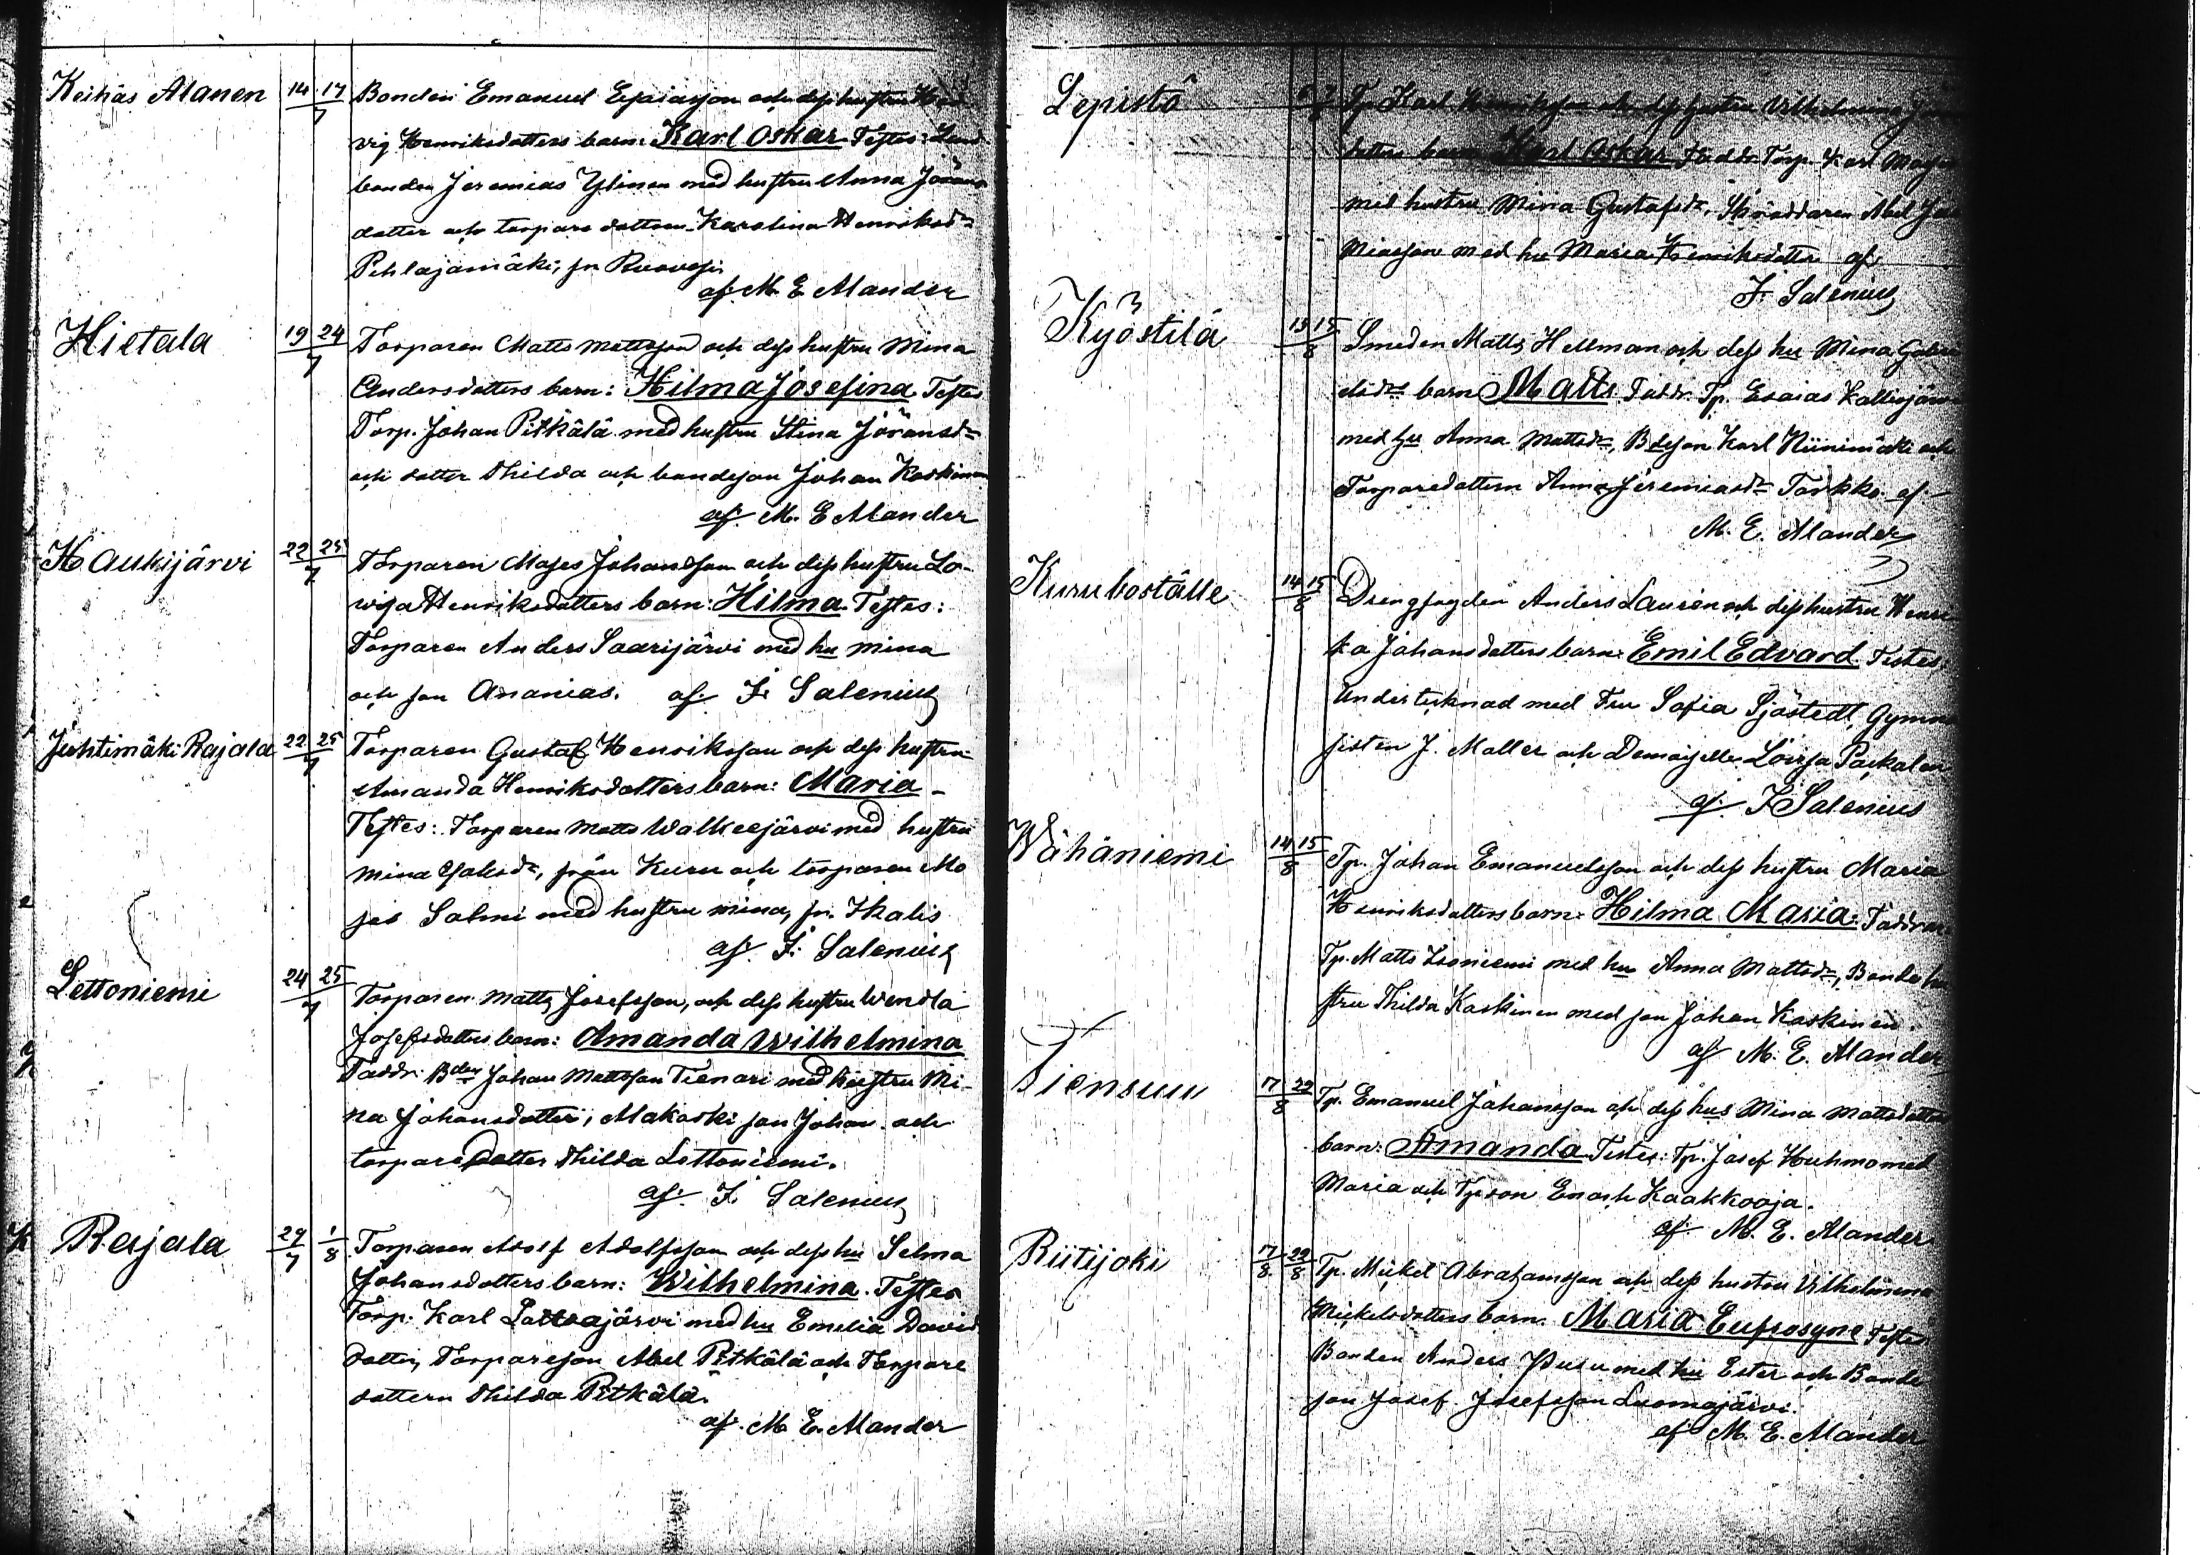 Keihäs Alanen 14 17 / 7 Bonden Emanuel Esaiasson och dess hustru Hed
vig Henriksdotters barn: Karl Oskar Testes: Land
bonden Jeremias Ylinen med hustru Anna Jörans
dotter och torpare dottern Karolina Henriksdr
Pihlajamäki, fr. Ruovesi.
af M. E Alander
Hietala 19 24 / 7 Torparen Matts Mattsson och dess hustru Mina
Andersdotters barn: Hilma Josefina Testes
Torp. Johan Pitkälä med hustru Stina Jöransdr
och dotter Thilda och bondeson Johan Koskinen
af M. E Alander
Haukijärvi 22 25 / 7 Torparen Moses Johansson och dess hustru Lo-
wisa Henriksdotters barn: Hilma Testes:
Torparen Anders Saarijärvi med hu Mina
och son Ananias. af F. Salenius
Juhtimäki Rajala 22 25 / 7 Torparen Gustaf Henriksson och dess hustru
Amanda Henriksdotters barn: Maria -
Testes: Torparen Matts Walkeejärvi med hustru
Mina, från Kuru och torparen Mo
ses Salmi med hustru Mina, fr. Ikalis
af F. Salenius
Lettoniemi 24 25 / 7 Torparen Matts Josefsson, och dess hustru Wendla
Josefsdotters barn: Amanda Wilhelmina
Faddr: Bden Johan Mattsson Tienari med hustru Mi-
na Johansdotter, Makoski son Johan och
torparedotter Thilda Lettoniemi.
af F. Salenius
Rajala 29/7 1/8 Torparen Adolf Adolfsson och dess hu Selma
Johansdotters barn: Wilhelmina. Testes
Torp. Karl Lattoajärvi med hu Emelia David
dotter, Torpareson Abel Pitkälä och Torpare
dottern Thilda Pitkälä.
af M. E. Alander
Lepistö Tp. Karl Henriksson och dess hustru Vilhelmina
dotters barn Karl Oskar Faddr Torp. Karl
med hustru Mina Gustafsdr, Skräddaren Abel Jere
miasson med hu Maria Henriksdotter af
F. Salenius
Kyöstilä 13 15 / 8 Smeden Matts Hellman och dess hu Mina Gabri
elsdrs barn Matts Faddr. Tp. Esaias Kalliojärvi
med hu Anna Mattsdr, Bdeson Karl Niinimäki och
Torparedottern Anna Jeremiasdr Tarkko af
M. E. Alander
Kuru boställe 14 15 / 8 Drengfogden Anders Lauren och dess hustru Henri
ka Johansdotters barn: Emil Edvard Testes:
Undertecknad med Fru Sofia Sjöstedt, Gymna
sisten J. Moller och Demoiselle Lovisa
af F Salenius
Wähäniemi 14 15 / 8 Tp. Johan Emanuelsson och dess hustru Maria
Henriksdotters barn: Hilma Maria: Faddrar
Tp. Matts Isoniemi med hu Anna Mattsdr, Bonde hu
stru Thilda Koskinen med son Johan Koskinen.
af M. E. Alander
Tiensuu 17 22 / 8 Tp. Emanuel Johansson och dess hus Mina Mattsdotters
barn: Amanda Testes: Tp. Josef Huhmo med
Maria och Tpson Enoch Kaakkooja.
af M. E. Alander
Riitijoki 17/8 22/8 Tp. Mickel Abrahamsson och dess hustru Vilhelmina
Mickelsdotters barn: Maria Eufrosyne Testes
Bonden Anders Pusu med hu Ester och Bonde
son Josef Josefsson Luomajärvi.
af M. E. Alander